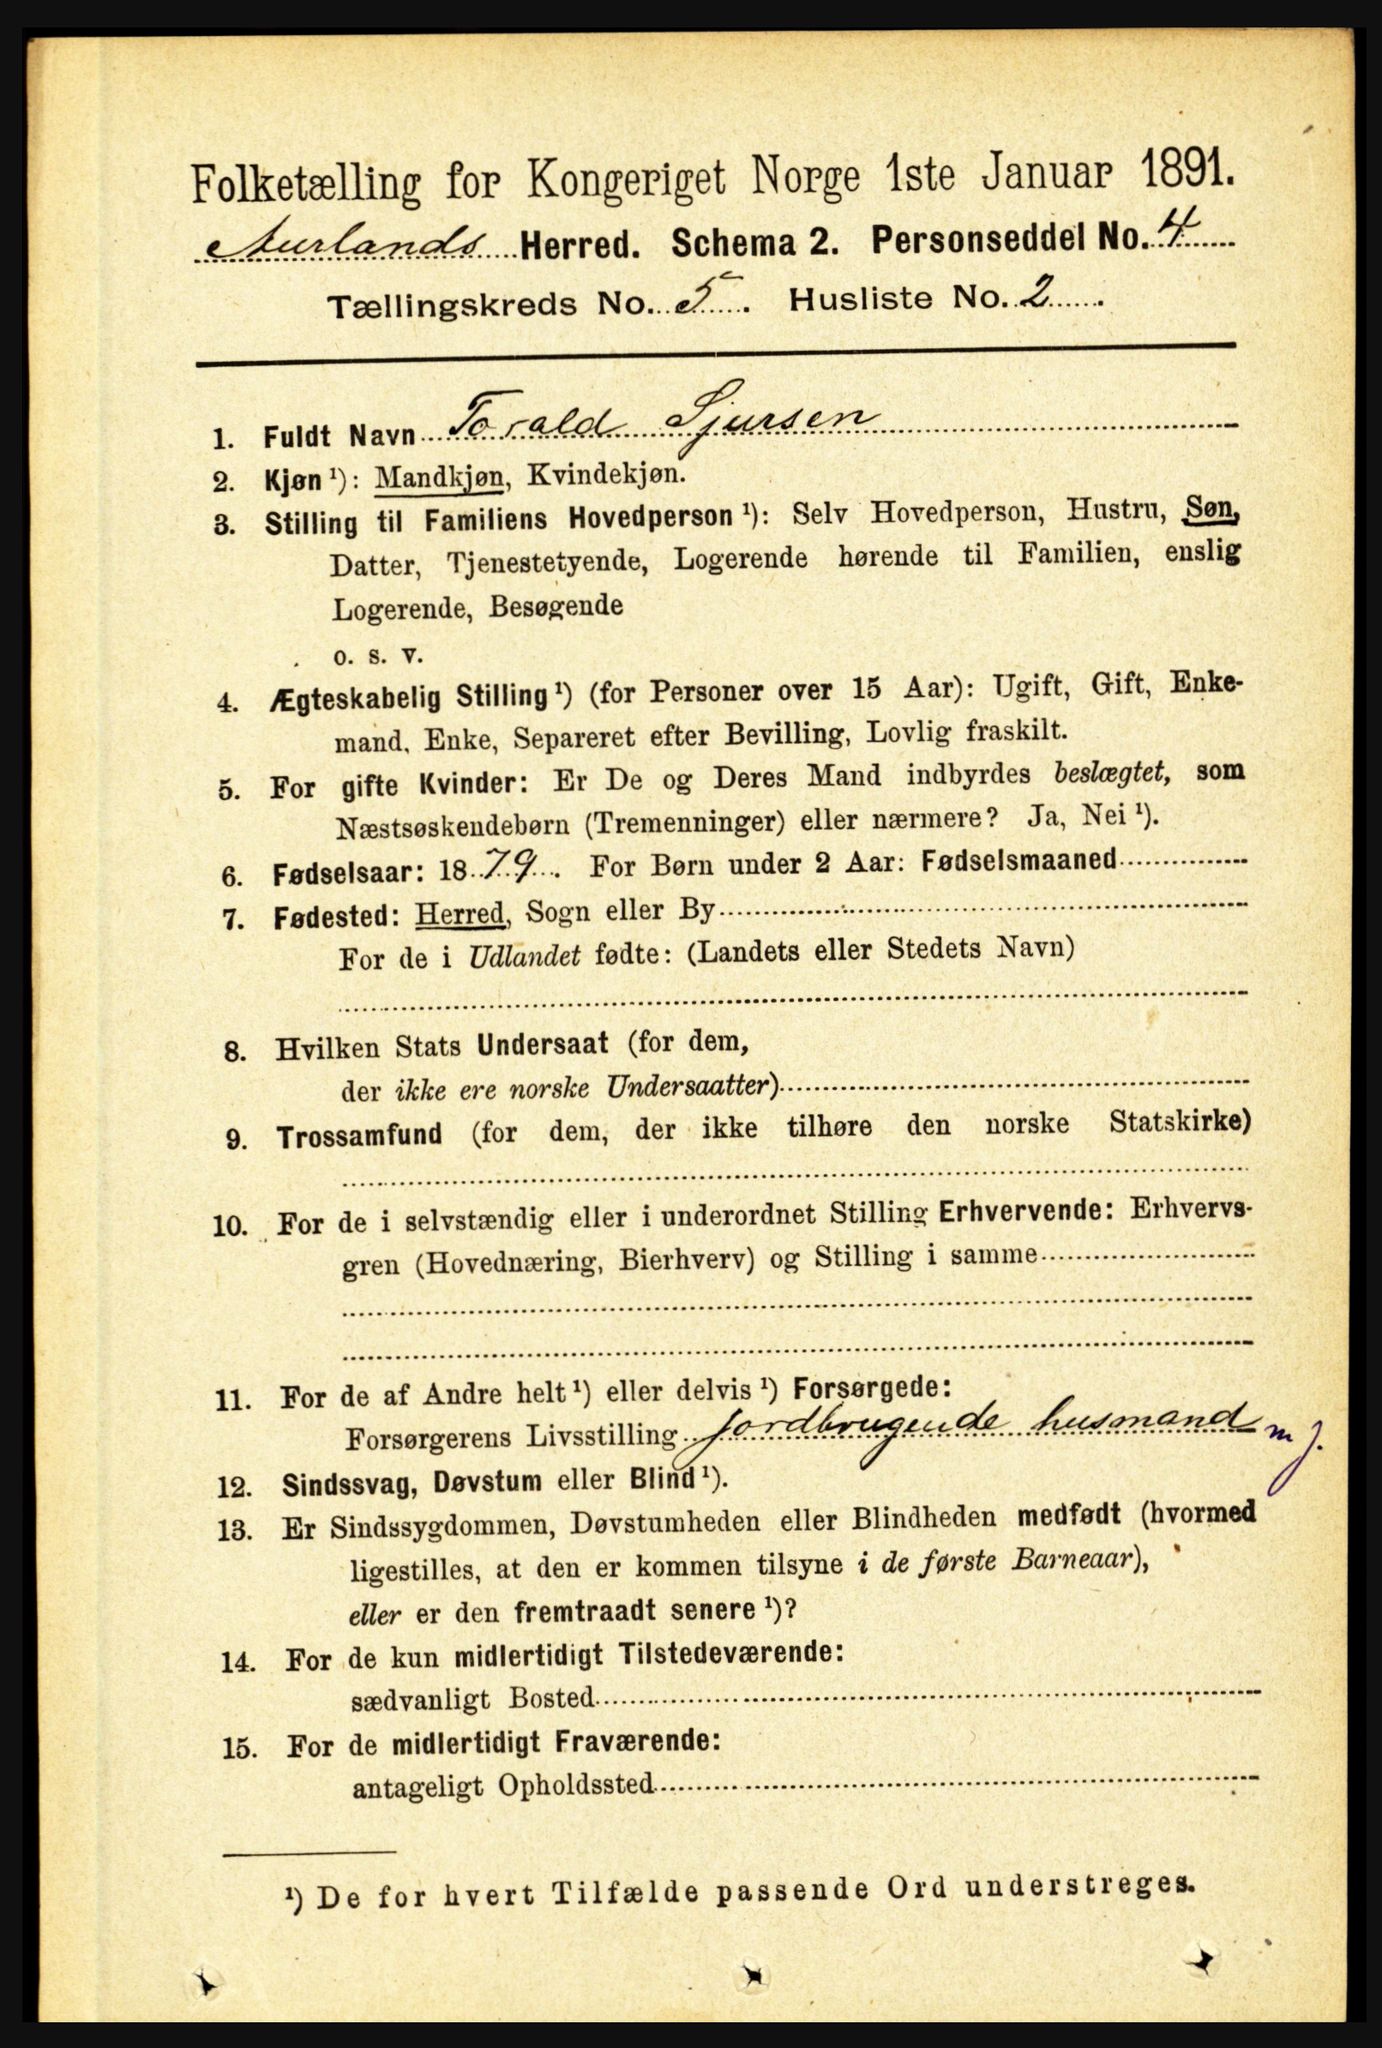 Folketælling for Kongeriget Norge 1ste Januar 1891.
Aurlands Herred. Schema 2. Personseddel No. 4
Tællingskreds No. 5. Husliste No. 2.
1. Fuldt Navn Torald Sjursen
2. Kjøn ¹): Mandkjøn, Kvindekjøn.
3. Stilling til Familiens Hovedperson ¹): Selv Hovedperson, Hustru, Søn,
Datter, Tjenestetyende, Logerende hørende til Familien, enslig
Logerende, Besøgende
o. s. v.
4. Ægteskabelig Stilling ¹) (for Personer over 15 Aar): Ugift, Gift, Enke-
mand, Enke, Separeret efter Bevilling, Lovlig fraskilt.
5. For gifte Kvinder: Er De og Deres Mand indbyrdes beslægtet, som
Næstsøskendebørn (Tremenninger) eller nærmere? Ja, Nei ¹).
6. Fødselsaar: 1879. For Børn under 2 Aar: Fødselsmaaned
7. Fødested: Herred, Sogn eller By
For de i Udlandet fødte: (Landets eller Stedets Navn)
8. Hvilken Stats Undersaat (for dem,
der ikke ere norske Undersaatter)
9. Trossamfund (for dem, der ikke tilhøre den norske Statskirke)
10. For de i selvstændig eller i underordnet Stilling Erhvervende: Erhvervs-
gren (Hovednæring, Bierhverv) og Stilling i samme
11. For de af Andre helt ¹) eller delvis ¹) Forsørgede:
Forsørgerens Livsstilling jordbrugende husmand m j.
12. Sindssvag, Døvstum eller Blind ¹).
13. Er Sindssygdommen, Døvstumheden eller Blindheden medfødt (hvormed
ligestilles, at den er kommen tilsyne i de første Barneaar),
eller er den fremtraadt senere ¹)?
14. For de kun midlertidigt Tilstedeværende:
sædvanligt Bosted
15. For de midlertidigt Fraværende:
antageligt Opholdssted
¹) De for hvert Tilfælde passende Ord understreges.